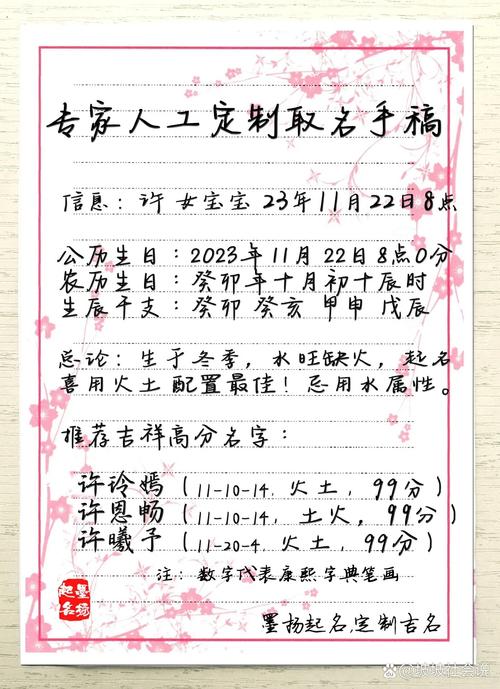 专家人工定制取名手稿
信息：许 女宝宝 23年11月22日8点
公历生日：2023年11月22日8点0分
农历生日：癸卯年十月初十辰时
生辰干支：癸卯 癸亥 甲申 戊辰
总论：生于冬季，水旺缺火，起名
喜用火土配置最佳！忌用水属性。
推荐吉祥高分名字：
许诠嫣（11-10-14，火土，99分）
许恩畅（11-10-14，土火，99分）
许曦予（11-20-4，火土，99分）
注：数字代表康熙字典笔画
墨扬起名，定制吉名